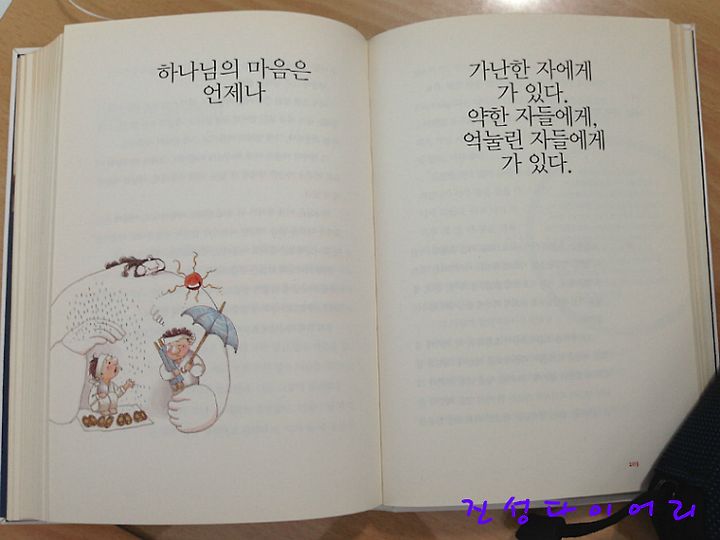 하나님의 마음은
언제나
가난한 자에게
가 있다.
약한 자들에게,
억눌린 자들에게
가 있다.
진성다이어리